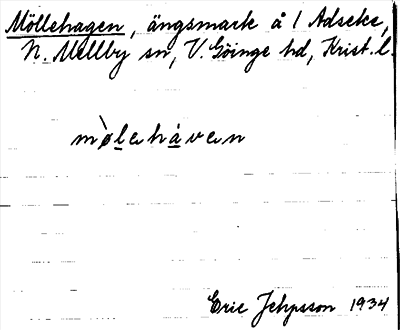 Möllehagen, ängsmark å 1 Adseke,
N. Mellby sn, V. Göinge hd, Krist. l.
mø̀lehàven
Eric Jeppsson 1934